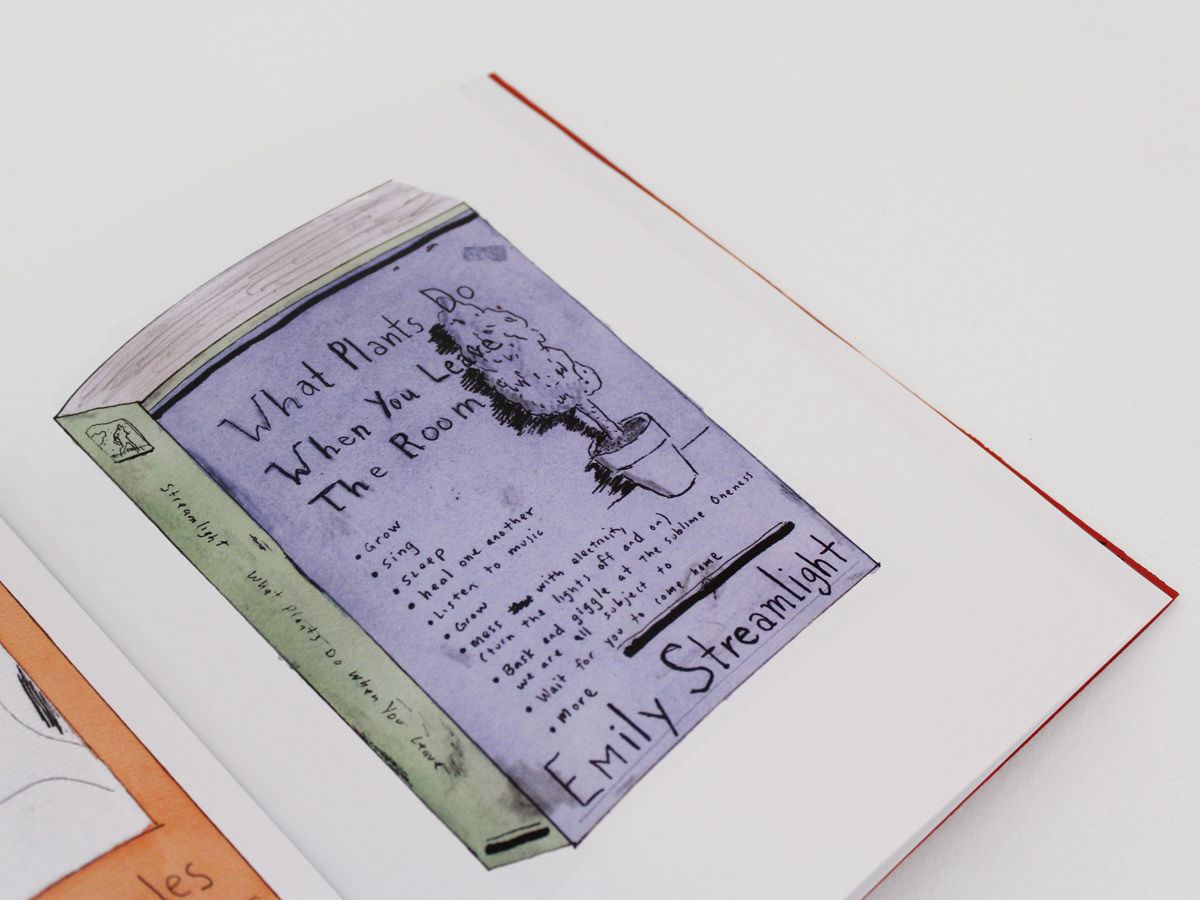 What Plants Do
When You Leave
The Room
• Grow
• Sing
• Sleep
• heal one another
• Listen to music
• Grow
• mess with electricity
(turn the lights off and on)
• Bask and giggle at the sublime Oneness
we are all subject to
• Wait for you to come home
• More
Emily Streamlight
Streamlight
What Plants Do When You Leave
les